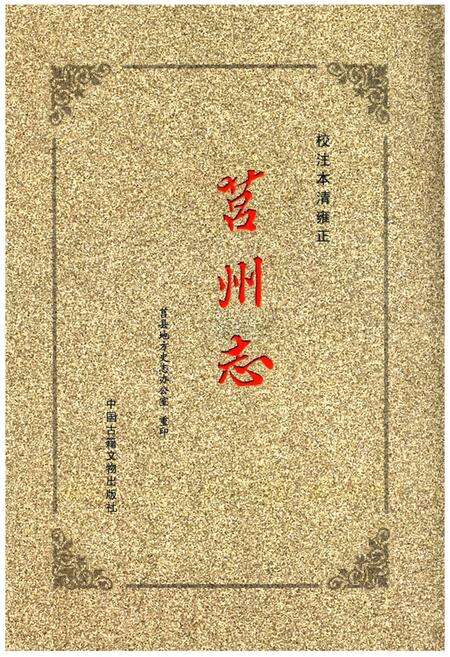 校注本清雍正
莒州志
莒县地方史志办公室 重印
中国古籍文物出版社